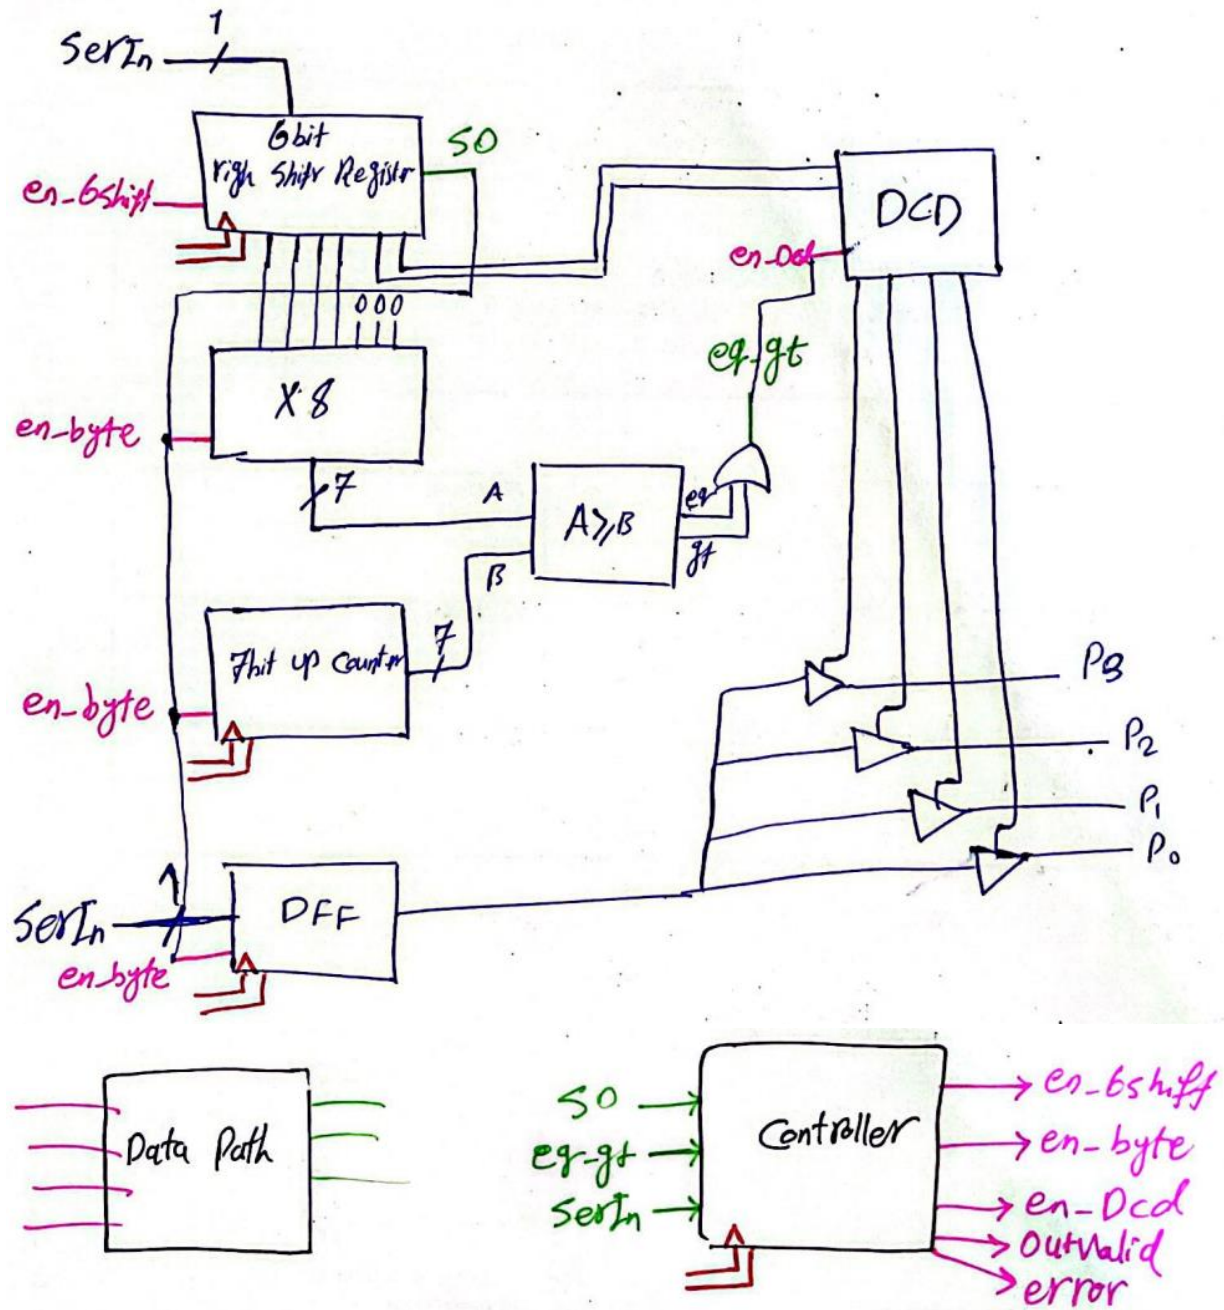 1
SerIn
6bit
righ Shift Register
SO
en-6shift
DCD
en-Dcd
000
X8
en-byte
eq-gt
7
A
A≥B
eq
gt
B
7
7bit up Counter
en-byte
P3
P2
P1
P0
1
SerIn
DFF
en-byte
Data Path
SO
eq-gt
SerIn
Controller
en-6shift
en-byte
en-Dcd
OutValid
error